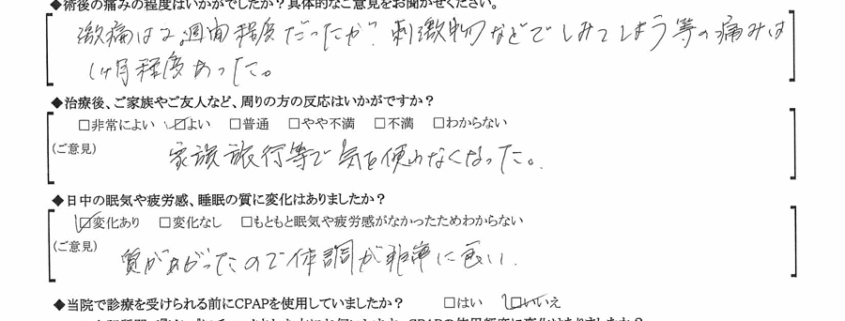 ◆術後の痛みの程度はいかがでしたか？具体的なご意見をお聞かせください。
激痛は2週間程度だったが、刺激物などでしみてしまう等の痛みは
1ヶ月程度あった。
◆治療後、ご家族やご友人など、周りの方の反応はいかがですか？
□非常によい ☑よい □普通 □やや不満 □不満 □わからない
(ご意見) 家族旅行等で気を使わなくなった。
◆日中の眠気や疲労感、睡眠の質に変化はありましたか？
☑変化あり □変化なし □もともと眠気や疲労感がなかったためわからない
(ご意見) 質があがったので体調が非常に良い.
◆当院で診療を受けられる前にCPAPを使用していましたか？ □はい ☑いいえ